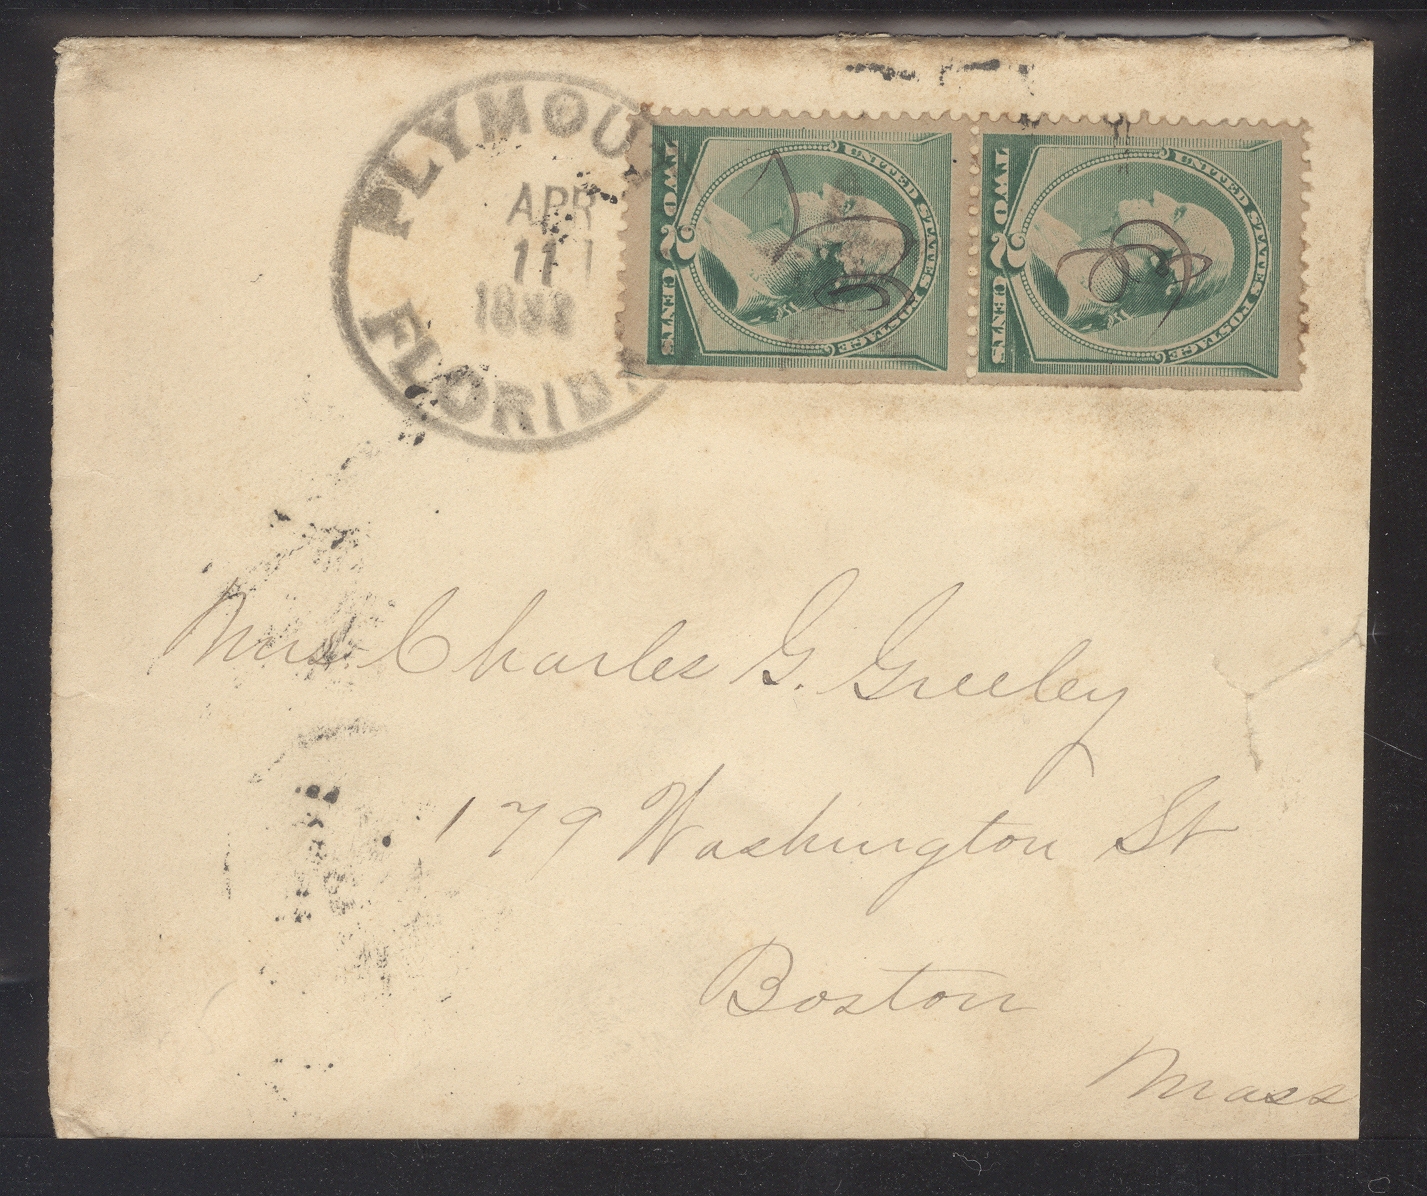 PLYMOU
APR
11
1888
FLORIDA
UNITED STATES POSTAGE
TWO 2 CENTS
UNITED STATES POSTAGE
TWO 2 CENTS
Mrs Charles G. Greeley
179 Washington St
Boston
Mass